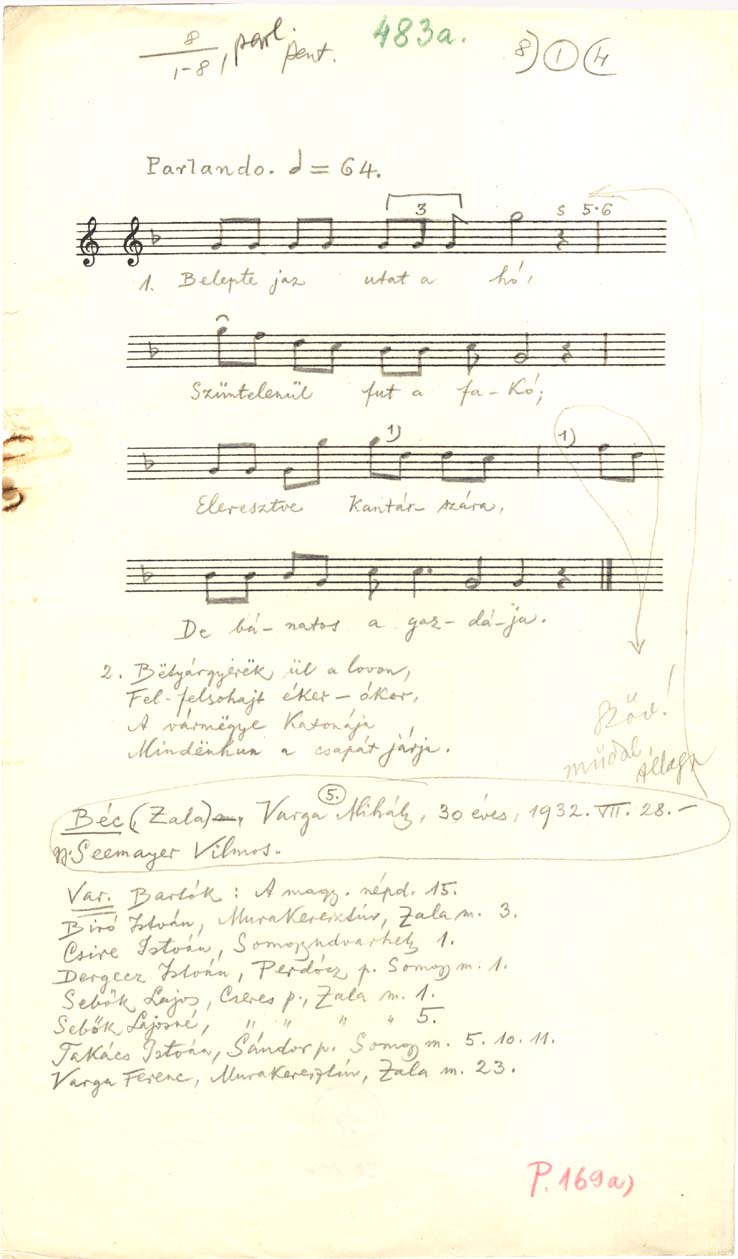 8
1-8, parl. pent.
483a.
8) 1 4
Parlando. = 64.
3
5 5·6
1. Belepte jaz utat a hó,
Szüntelenül fut a fa-kó;
1) 1)
Eleresztve kantár-szára,
De bá-natos a gaz-dá-ja.
2. Bëtyárgyerëk ül a lovon,
Fel-felsohajt éker-ókor,
A vármëgye katonája
Mindënhun a csapát járja.
Szöv!
műdal
Állaga
5.
Béc (Zala), Varga Mihály, 30 éves, 1932. VII. 28.-
Gy. Seemayer Vilmos.
Var. Bartók: A magy. népd. 15.
Biró István, Murakeresztúr, Zala m. 3.
Csire István, Somogyudvarhely 1.
Dergecz István, Perdócz p. Somogy m. 1.
Sebők Lajos, Cseres p., Zala m. 1.
Sebők Lajosné, " " " " 5.
Takács István, Sándor p. Somogy m. 5. 10. 11.
Varga Ferenc, Murakeresztúr, Zala m. 23.
P. 169a)